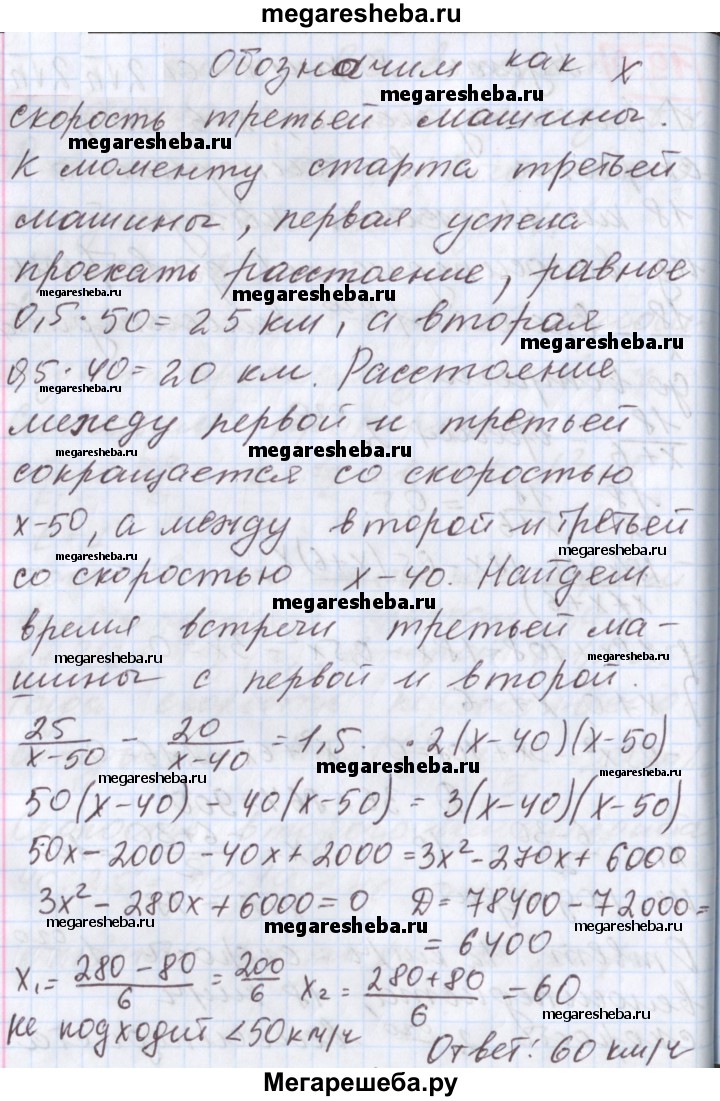 megaresheba.ru
Обозначим как x
megaresheba.ru
скорость третьей машины.
megaresheba.ru
К моменту старта третьей
машины, первая успела
проехать расстоение, равное
megaresheba.ru megaresheba.ru
0,5 · 50 = 25 км, а вторая
megaresheba.ru
0,5 · 40 = 20 км. Расстоение
megaresheba.ru
между первой и третьей
megaresheba.ru megaresheba.ru
сокращается со скоростью
x-50, а между второй и третьей
megaresheba.ru megaresheba.ru
со скоростью x-40. Найдем
megaresheba.ru
время встречи третьей ма-
megaresheba.ru megaresheba.ru
шины с первой и второй.
25/(x-50) - 20/(x-40) = 1,5. · 2(x-40)(x-50)
megaresheba.ru megaresheba.ru megaresheba.ru
50(x-40) - 40(x-50) = 3(x-40)(x-50)
50x - 2000 - 40x + 2000 = 3x² - 270x + 6000
megaresheba.ru
3x² - 280x + 6000 = 0 Д = 78400 - 72000 =
megaresheba.ru
= 6400
megaresheba.ru
x₁ = (280-80)/6 = 200/6 x₂ = (280+80)/6 = 60
megaresheba.ru
не подходит <50км/ч
Ответ: 60 км/ч
Мегарешеба.ру